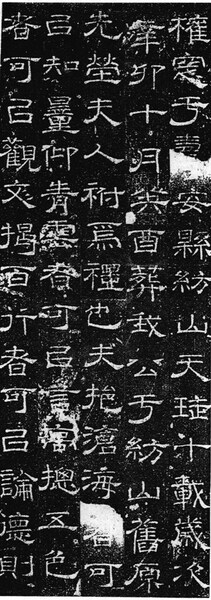 權窆于安縣紡山天珤十載歲次
辛卯十月癸酉葬我公于紡山舊原
先塋夫人祔焉禮也夫挹滄海者可
㠯知量仰青雲者可㠯言摠五色
者可㠯觀文揭百行者可㠯論德則